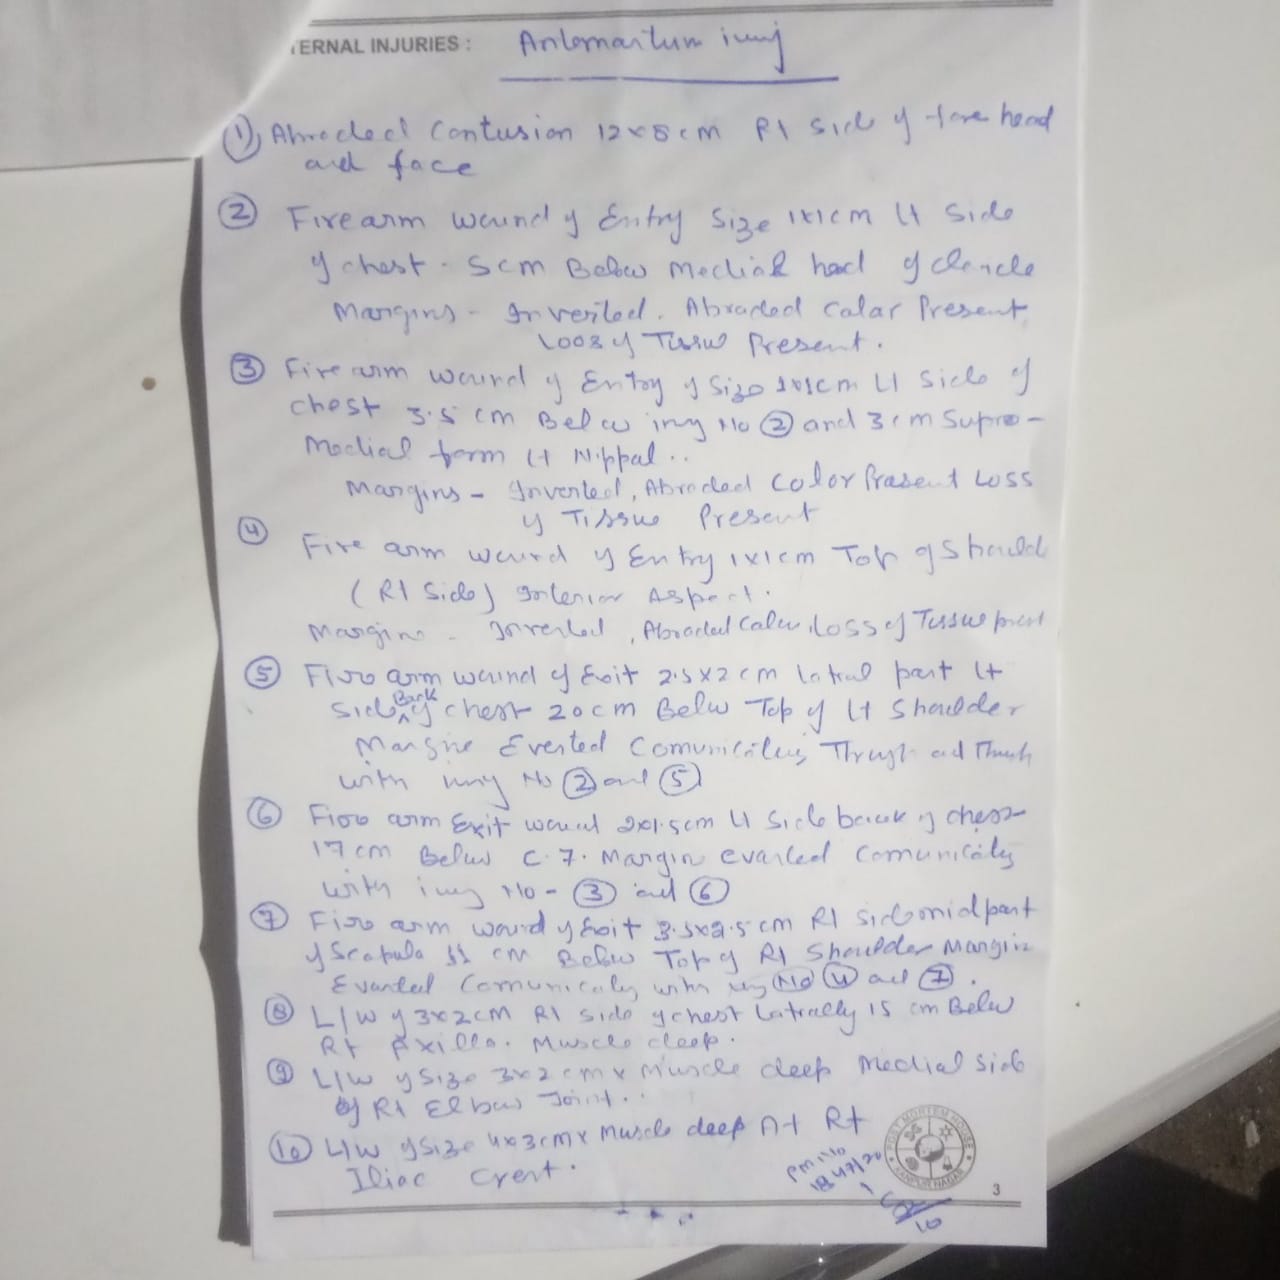 TERNAL INJURIES : Antemartum inuj
① Abraded Contusion 12x8cm Rt side of fore head
and face
② Firearm wound of Entry Size 1x1cm Lt Side
of chest - 5cm Below Medial head of clavicle
Margins - Inverted. Abraded Colar Present
Loos of Tissue Present.
③ Fire arm wound of Entry of Size 1x1cm Lt Side of
chest 3.5 cm Below inuy No ② and 3cm Supro-
Medial form Lt Nippal..
Margins - Inverted, Abraded Color Prasent Loss
of Tissue Present
④ Fire arm wound of Entry 1x1cm Top of Should
(Rt Side) Aspect.
Margine - Inverted, Abraded Calar, Loss of Tissue
⑤ Fire arm wound of Exit 2.5x2cm Latral part Lt
Side Back of chest 20cm Below Top of Lt Shoulder
Margine Everted Through and
with inuy No ② and ⑤
⑥ Fire arm Exit wound 2x1.5cm Lt Side back of chest
17cm Below C.7. Margin evarted Comunicatig
with inuy No - ③ and ⑥
⑦ Fire arm wound of Exit 3.5x2.5cm Rt side mid part
of Scapula 11 cm Below Top of Rt Shoulder Margin
Evarted Comunicatig with inuy No ④ and ⑦.
⑧ L/W of 3x2cm Rt side of chest Latrally 15 cm Below
Rt Axilla. Muscle deep.
⑨ L/W of Size 3x2cm x Muscle deep Medial Side
of Rt Elbow Joint..
⑩ L/W of Size 4x3cm x Muscle deep At Rt
Iliac Crest.
POST MORTEM HOUSE
KANPUR NAGAR
PM No
1847/20
10
3